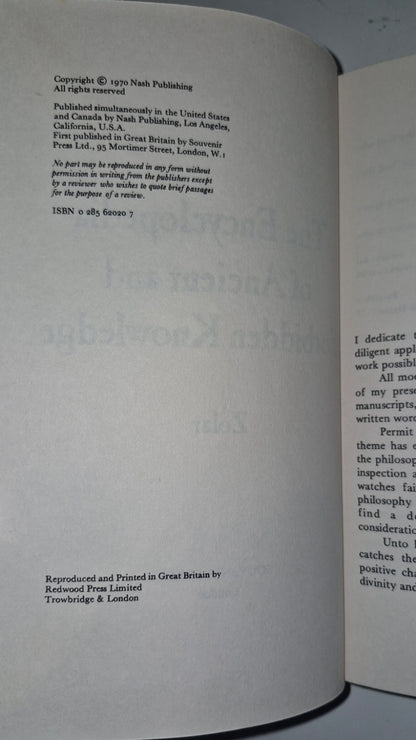 Copyright © 1970 Nash Publishing
All rights reserved
Published simultaneously in the United States
and Canada by Nash Publishing, Los Angeles,
California, U.S.A.
First published in Great Britain by Souvenir
Press Ltd., 95 Mortimer Street, London, W.1
No part may be reproduced in any form without
permission in writing from the publishers except
by a reviewer who wishes to quote brief passages
for the purpose of a review.
ISBN 0 285 62020 7
The Encyclopedia
of Ancient and
Forbidden Knowledge
Zolar
Reproduced and Printed in Great Britain by
Redwood Press Limited
Trowbridge & London
I dedicate
diligent appl
work possibl
All mo
of my pres
manuscripts,
written word
Permit
theme has e
the philosop
inspection a
watches fai
philosophy
find a d
consideratio
Unto
catches the
positive cha
divinity and